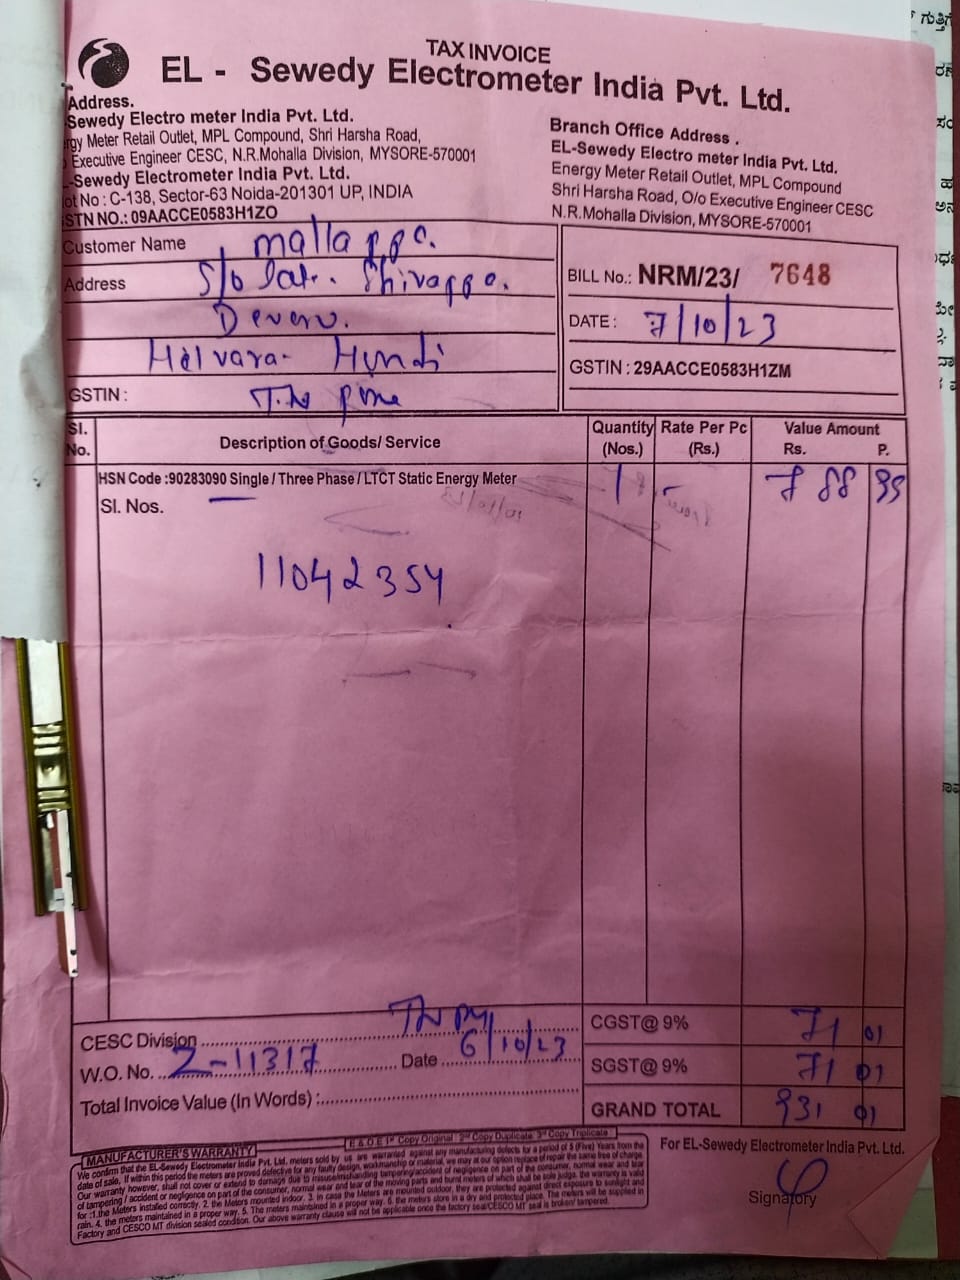 TAX INVOICE
EL - Sewedy Electrometer India Pvt. Ltd.
Address.
Sewedy Electro meter India Pvt. Ltd.
rgy Meter Retail Outlet, MPL Compound, Shri Harsha Road,
Executive Engineer CESC, N.R.Mohalla Division, MYSORE-570001
-Sewedy Electrometer India Pvt. Ltd.
ot No : C-138, Sector-63 Noida-201301 UP, INDIA
STN NO.: 09AACCE0583H1ZO
Branch Office Address .
EL-Sewedy Electro meter India Pvt. Ltd.
Energy Meter Retail Outlet, MPL Compound
Shri Harsha Road, O/o Executive Engineer CESC
N.R.Mohalla Division, MYSORE-570001
Customer Name mallappa.
Address S/o Late. Shivappa.
Devaru.
Helvara- Hundi
GSTIN :
BILL No.: NRM/23/ 7648
DATE : 7/10/23
GSTIN : 29AACCE0583H1ZM
Sl. No. Description of Goods/ Service Quantity (Nos.) Rate Per Pc (Rs.) Value Amount Rs. P.
HSN Code :90283090 Single / Three Phase / LTCT Static Energy Meter 1 - 788 99
Sl. Nos.
11042354
CESC Division
W.O. No. 2-11317 Date 6/10/23
Total Invoice Value (In Words) :
CGST@ 9% 71 01
SGST@ 9% 71 01
GRAND TOTAL 931 01
E & O E 1st Copy Original 2nd Copy Duplicate 3rd Copy Triplicate
MANUFACTURER'S WARRANTY
We confirm that the EL-Sewedy Electrometer India Pvt. Ltd. meters sold by us are warranted against any manufacturing defects for a period of 5 (Five) Years from the
date of sale. If within this period the meters are proved defective for any faulty design, workmanship or material, we may at our option replace of repair the same free of charge.
Our warranty however, shall not cover or extend to damage due to misuse/mishandling tampering/accident of negligence on part of the consumer, normal wear and tear
for :1.the Meters installed correctly. 2. the Meters mounted indoor. 3. in case the Meters are mounted outdoor, they are protected against direct exposure to sunlight and
rain. 4. the meters maintained in a proper way. 5. the meters store in a dry and protected place. The meters will be supplied in
Factory and CESCO MT division sealed condition. Our above warranty clause will not be applicable once the factory seal/CESCO MT seal is broken/ tampered.
For EL-Sewedy Electrometer India Pvt. Ltd.
Signatory